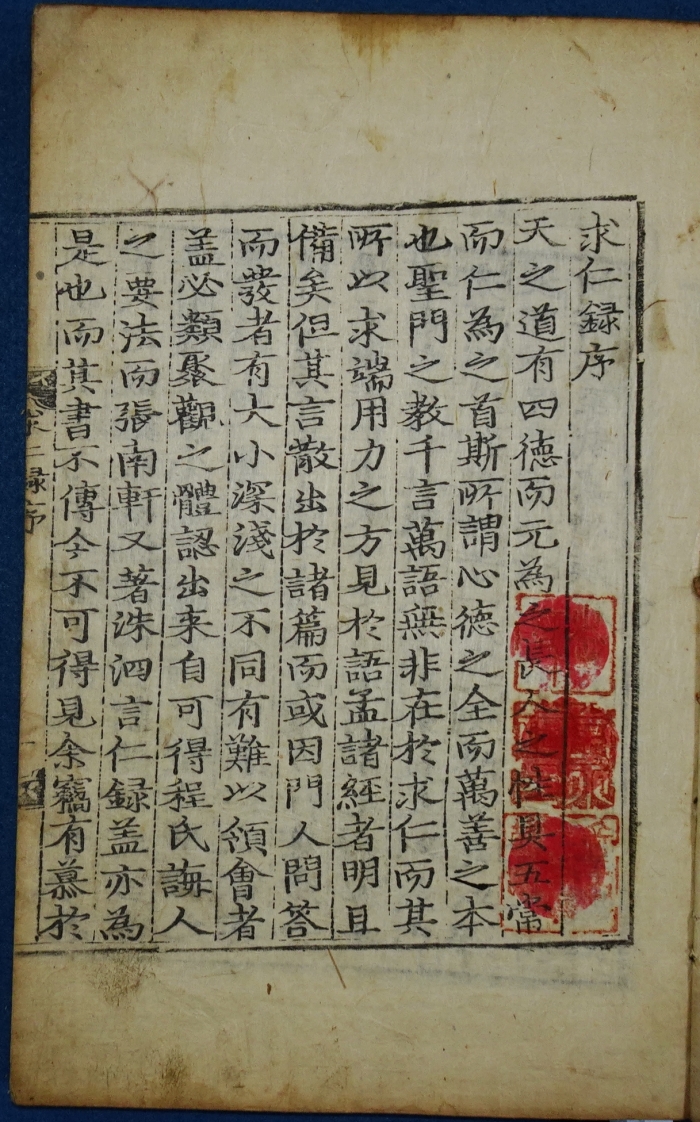 求仁録序
天之道有四德而元為之長人之性具五常
而仁為之首斯所謂心德之全而萬善之本
也聖門之教千言萬語無非在於求仁而其
所以求端用力之方見於語孟諸經者明且
備矣但其言散出於諸篇而或因門人問答
而發者有大小深淺之不同有難以領會者
盖必類聚觀之體認出来自可得程氏誨人
之要法而張南軒又著洙泗言仁録盖亦為
是也而其書不傳今不可得見余竊有慕於
求仁録序